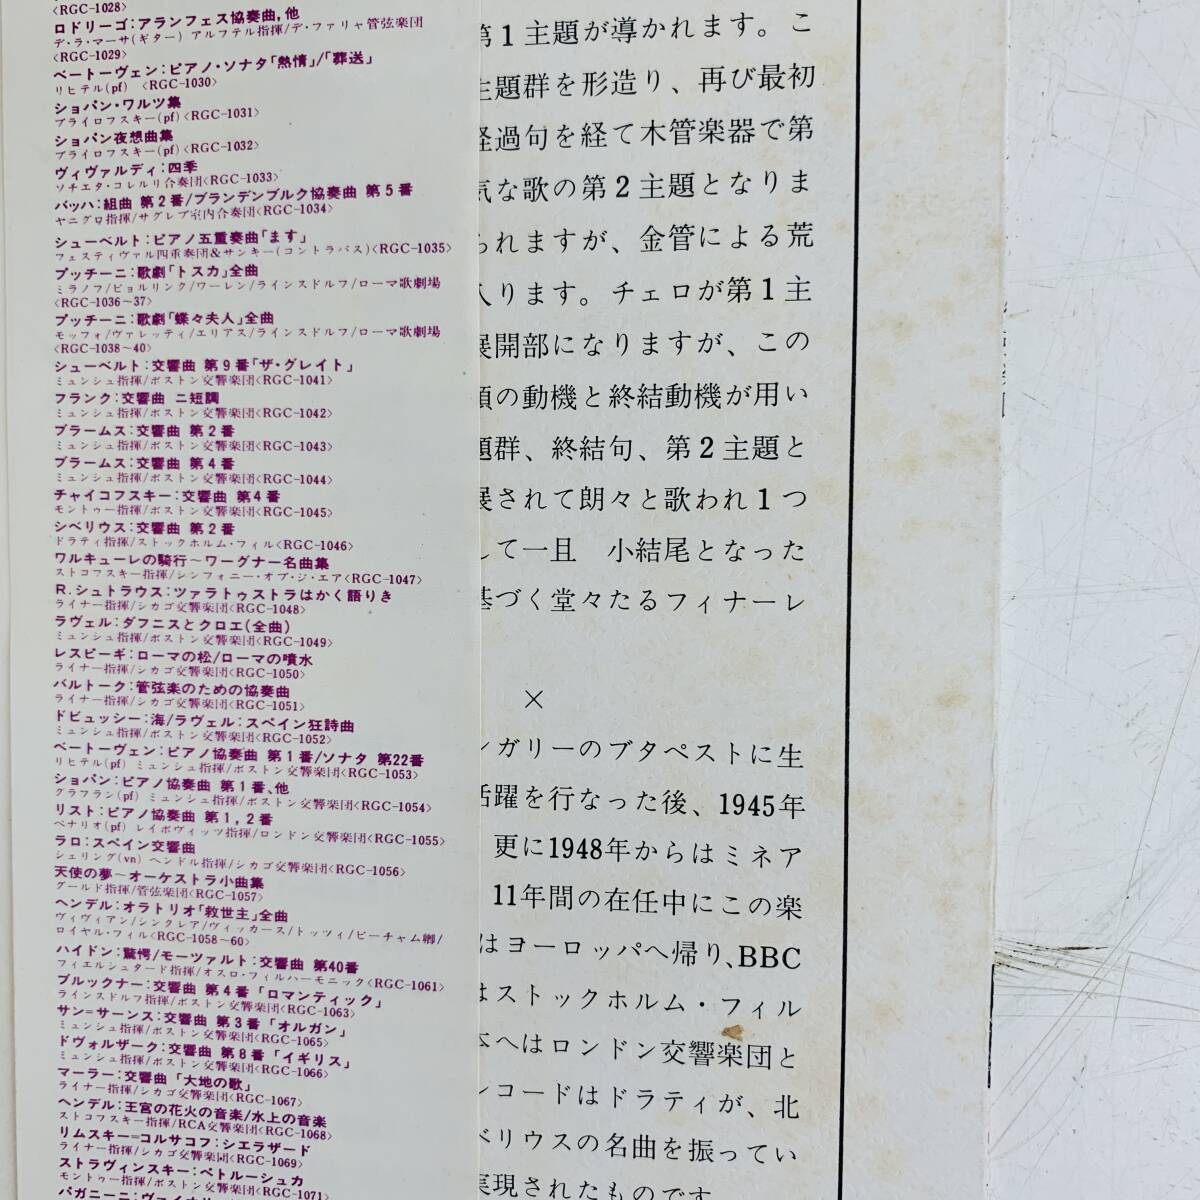 <RGC-1028>
ロドリーゴ:アランフェス協奏曲,他
デ・ラ・マーサ(ギター) アルフテル指揮/デ・ファリャ管弦楽団
<RGC-1029>
ベートーヴェン:ピアノ・ソナタ「熱情」/「葬送」
リヒテル(pf) <RGC-1030>
ショパン・ワルツ集
ブライロフスキー(pf)<RGC-1031>
ショパン夜想曲集
ブライロフスキー(pf)<RGC-1032>
ヴィヴァルディ:四季
ソチエタ・コレルリ合奏団<RGC-1033>
バッハ:組曲 第2番/ブランデンブルク協奏曲 第5番
ヤニグロ指揮/ザグレブ室内合奏団<RGC-1034>
シューベルト:ピアノ五重奏曲「ます」
フェスティヴァル四重奏団&サンキー(コントラバス)<RGC-1035>
プッチーニ:歌劇「トスカ」全曲
ミラノフ/ビョルリンク/ワーレン/ラインスドルフ/ローマ歌劇場
<RGC-1036~37>
プッチーニ:歌劇「蝶々夫人」全曲
モッフォ/ヴァレッティ/エリアス/ラインスドルフ/ローマ歌劇場
<RGC-1038~40>
シューベルト:交響曲 第9番「ザ・グレイト」
ミュンシュ指揮/ボストン交響楽団<RGC-1041>
フランク:交響曲 ニ短調
ミュンシュ指揮/ボストン交響楽団<RGC-1042>
ブラームス:交響曲 第2番
ミュンシュ指揮/ボストン交響楽団<RGC-1043>
ブラームス:交響曲 第4番
ミュンシュ指揮/ボストン交響楽団<RGC-1044>
チャイコフスキー:交響曲 第4番
モントゥー指揮/ボストン交響楽団<RGC-1045>
シベリウス:交響曲 第2番
ドラティ指揮/ストックホルム・フィル<RGC-1046>
ワルキューレの騎行~ワーグナー名曲集
ストコフスキー指揮/シンフォニー・オブ・ジ・エア<RGC-1047>
R.シュトラウス:ツァラトゥストラはかく語りき
ライナー指揮/シカゴ交響楽団<RGC-1048>
ラヴェル:ダフニスとクロエ(全曲)
ミュンシュ指揮/ボストン交響楽団<RGC-1049>
レスピーギ:ローマの松/ローマの噴水
ライナー指揮/シカゴ交響楽団<RGC-1050>
バルトーク:管弦楽のための協奏曲
ライナー指揮/シカゴ交響楽団<RGC-1051>
ドビュッシー:海/ラヴェル:スペイン狂詩曲
ミュンシュ指揮/ボストン交響楽団<RGC-1052>
ベートーヴェン:ピアノ協奏曲 第1番/ソナタ 第22番
リヒテル(pf) ミュンシュ指揮/ボストン交響楽団<RGC-1053>
ショパン:ピアノ協奏曲 第1番、他
グラフラン(pf) ミュンシュ指揮/ボストン交響楽団<RGC-1054>
リスト:ピアノ協奏曲 第1,2番
ペナリオ(pf) レイボヴィッツ指揮/ロンドン交響楽団<RGC-1055>
ラロ:スペイン交響曲
シェリング(vn) ヘンドル指揮/シカゴ交響楽団<RGC-1056>
天使の夢~オーケストラ小曲集
グールド指揮/管弦楽団<RGC-1057>
ヘンデル:オラトリオ「救世主」全曲
ヴィヴィアン/シンクレア/ヴィッカース/トッツィ/ビーチャム卿/
ロイヤル・フィル<RGC-1058~60>
ハイドン:驚愕/モーツァルト:交響曲 第40番
フィエルシュタード指揮/オスロ・フィルハーモニック<RGC-1061>
ブルックナー:交響曲 第4番「ロマンティック」
ラインスドルフ指揮/ボストン交響楽団<RGC-1063>
サン=サーンス:交響曲 第3番「オルガン」
ミュンシュ指揮/ボストン交響楽団<RGC-1065>
ドヴォルザーク:交響曲 第8番「イギリス」
ミュンシュ指揮/ボストン交響楽団<RGC-1066>
マーラー:交響曲「大地の歌」
ライナー指揮/シカゴ交響楽団<RGC-1067>
ヘンデル:王宮の花火の音楽/水上の音楽
ストコフスキー指揮/RCA交響楽団<RGC-1068>
リムスキー=コルサコフ:シエラザード
ライナー指揮/シカゴ交響楽団<RGC-1069>
ストラヴィンスキー:ペトルーシュカ
モントゥー指揮/ボストン交響楽団<RGC-1071>
第1主題が導かれます。こ
主題群を形造り、再び最初
経過句を経て木管楽器で第
気な歌の第2主題となりま
られますが、金管による荒
入ります。チェロが第1主
展開部になりますが、この
頭の動機と終結動機が用い
題群、終結句、第2主題と
展されて朗々と歌われ1つ
して一旦 小結尾となった
基づく堂々たるフィナーレ
×
ンガリーのブタペストに生
活躍を行なった後、1945年
更に1948年からはミネア
11年間の在任中にこの楽
はヨーロッパへ帰り、BBC
はストックホルム・フィル
本へはロンドン交響楽団と
レコードはドラティが、北
ベリウスの名曲を振ってい
実現されたものです。